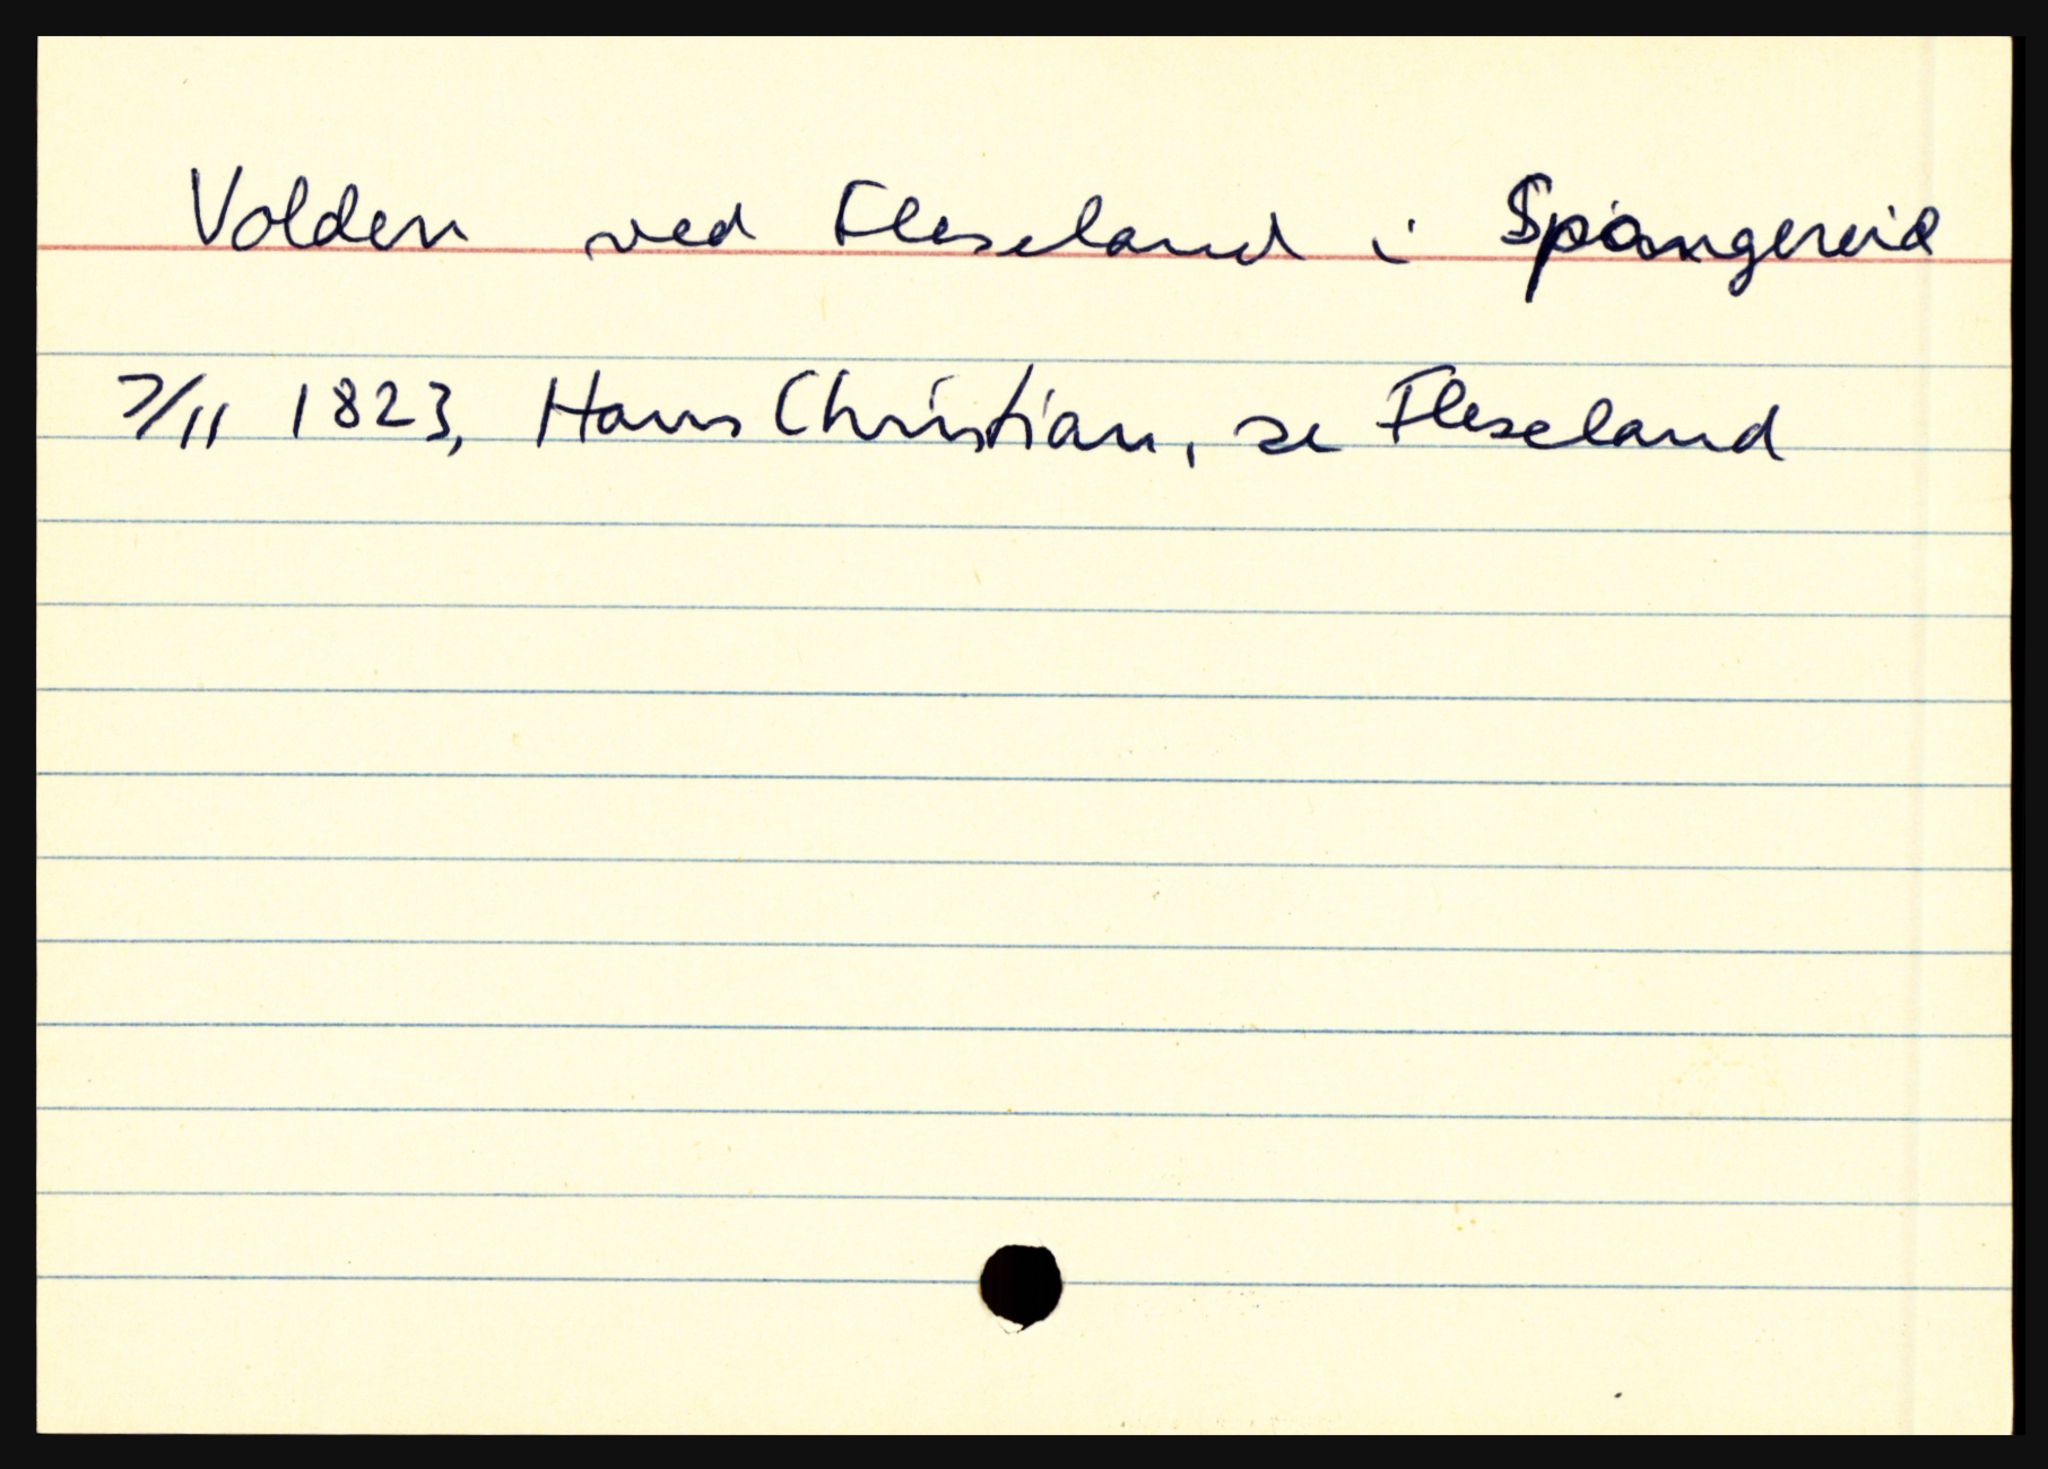 Volden ved Fleseland i Spangereid
7/11 1823, Hans Christian, se Fleseland